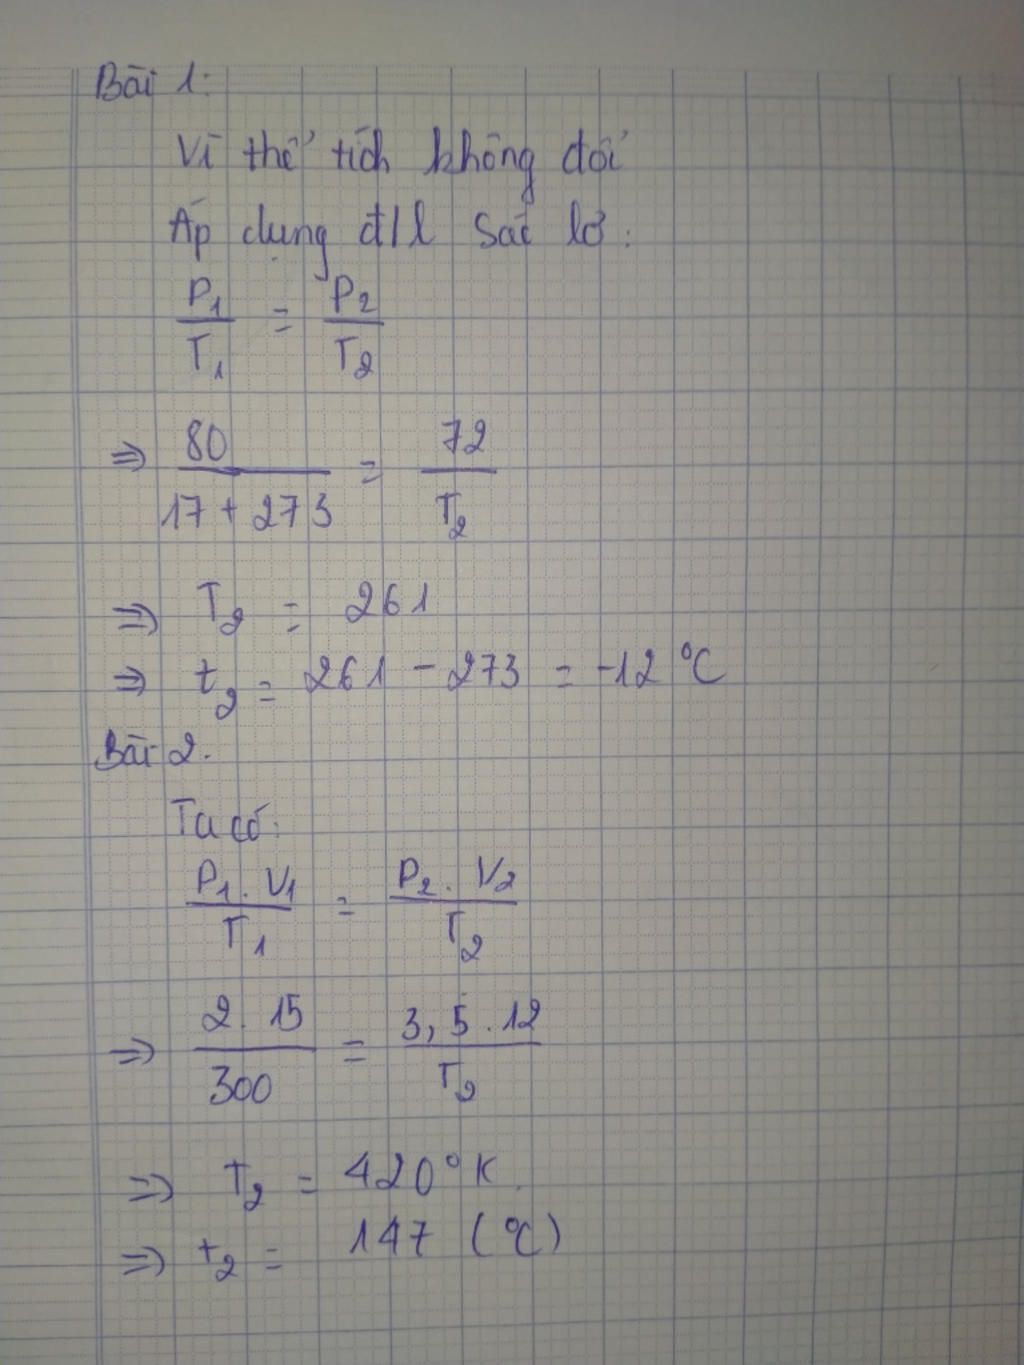 Bài 1:
Vì thể tích không đổi
Áp dụng đ/l Sác lơ:
P1/T1 = P2/T2
⇒ 80/(17 + 273) = 72/T2
⇒ T2 = 261
⇒ t2 = 261 - 273 = -12 °C
Bài 2.
Ta có:
P1 . V1/T1 = P2 . V2/T2
⇒ 2 . 15/300 = 3,5 . 12/T2
⇒ T2 = 420°K.
⇒ t2 = 147 (°C)